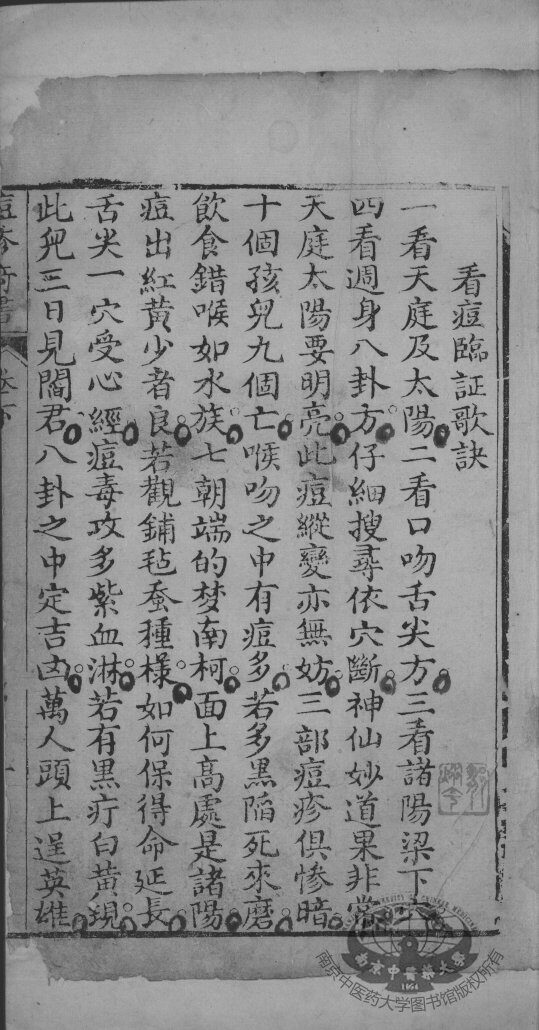 看痘臨証歌訣
一看天庭及太陽二看口吻舌尖方三看諸陽梁下
四看週身八卦方仔細搜尋依穴斷神仙妙道果非常
天庭太陽要明亮此痘縱變亦無妨三部痘疹俱慘暗
十個孩兒九個亡喉吻之中有痘多若多黑陷死來磨
飲食錯喉如水族七朝端的梦南柯面上高處是諸陽
痘出紅黃少者良若觀鋪毡蚕種様如何保得命延長
舌尖一穴受心經痘毒攻多紫血淋若有黑疔白黃現
此兒三日見閻君八卦之中定吉凶萬人頭上逞英雄
南京中醫藥大學
1954
南京中医药大学图书馆版权所有